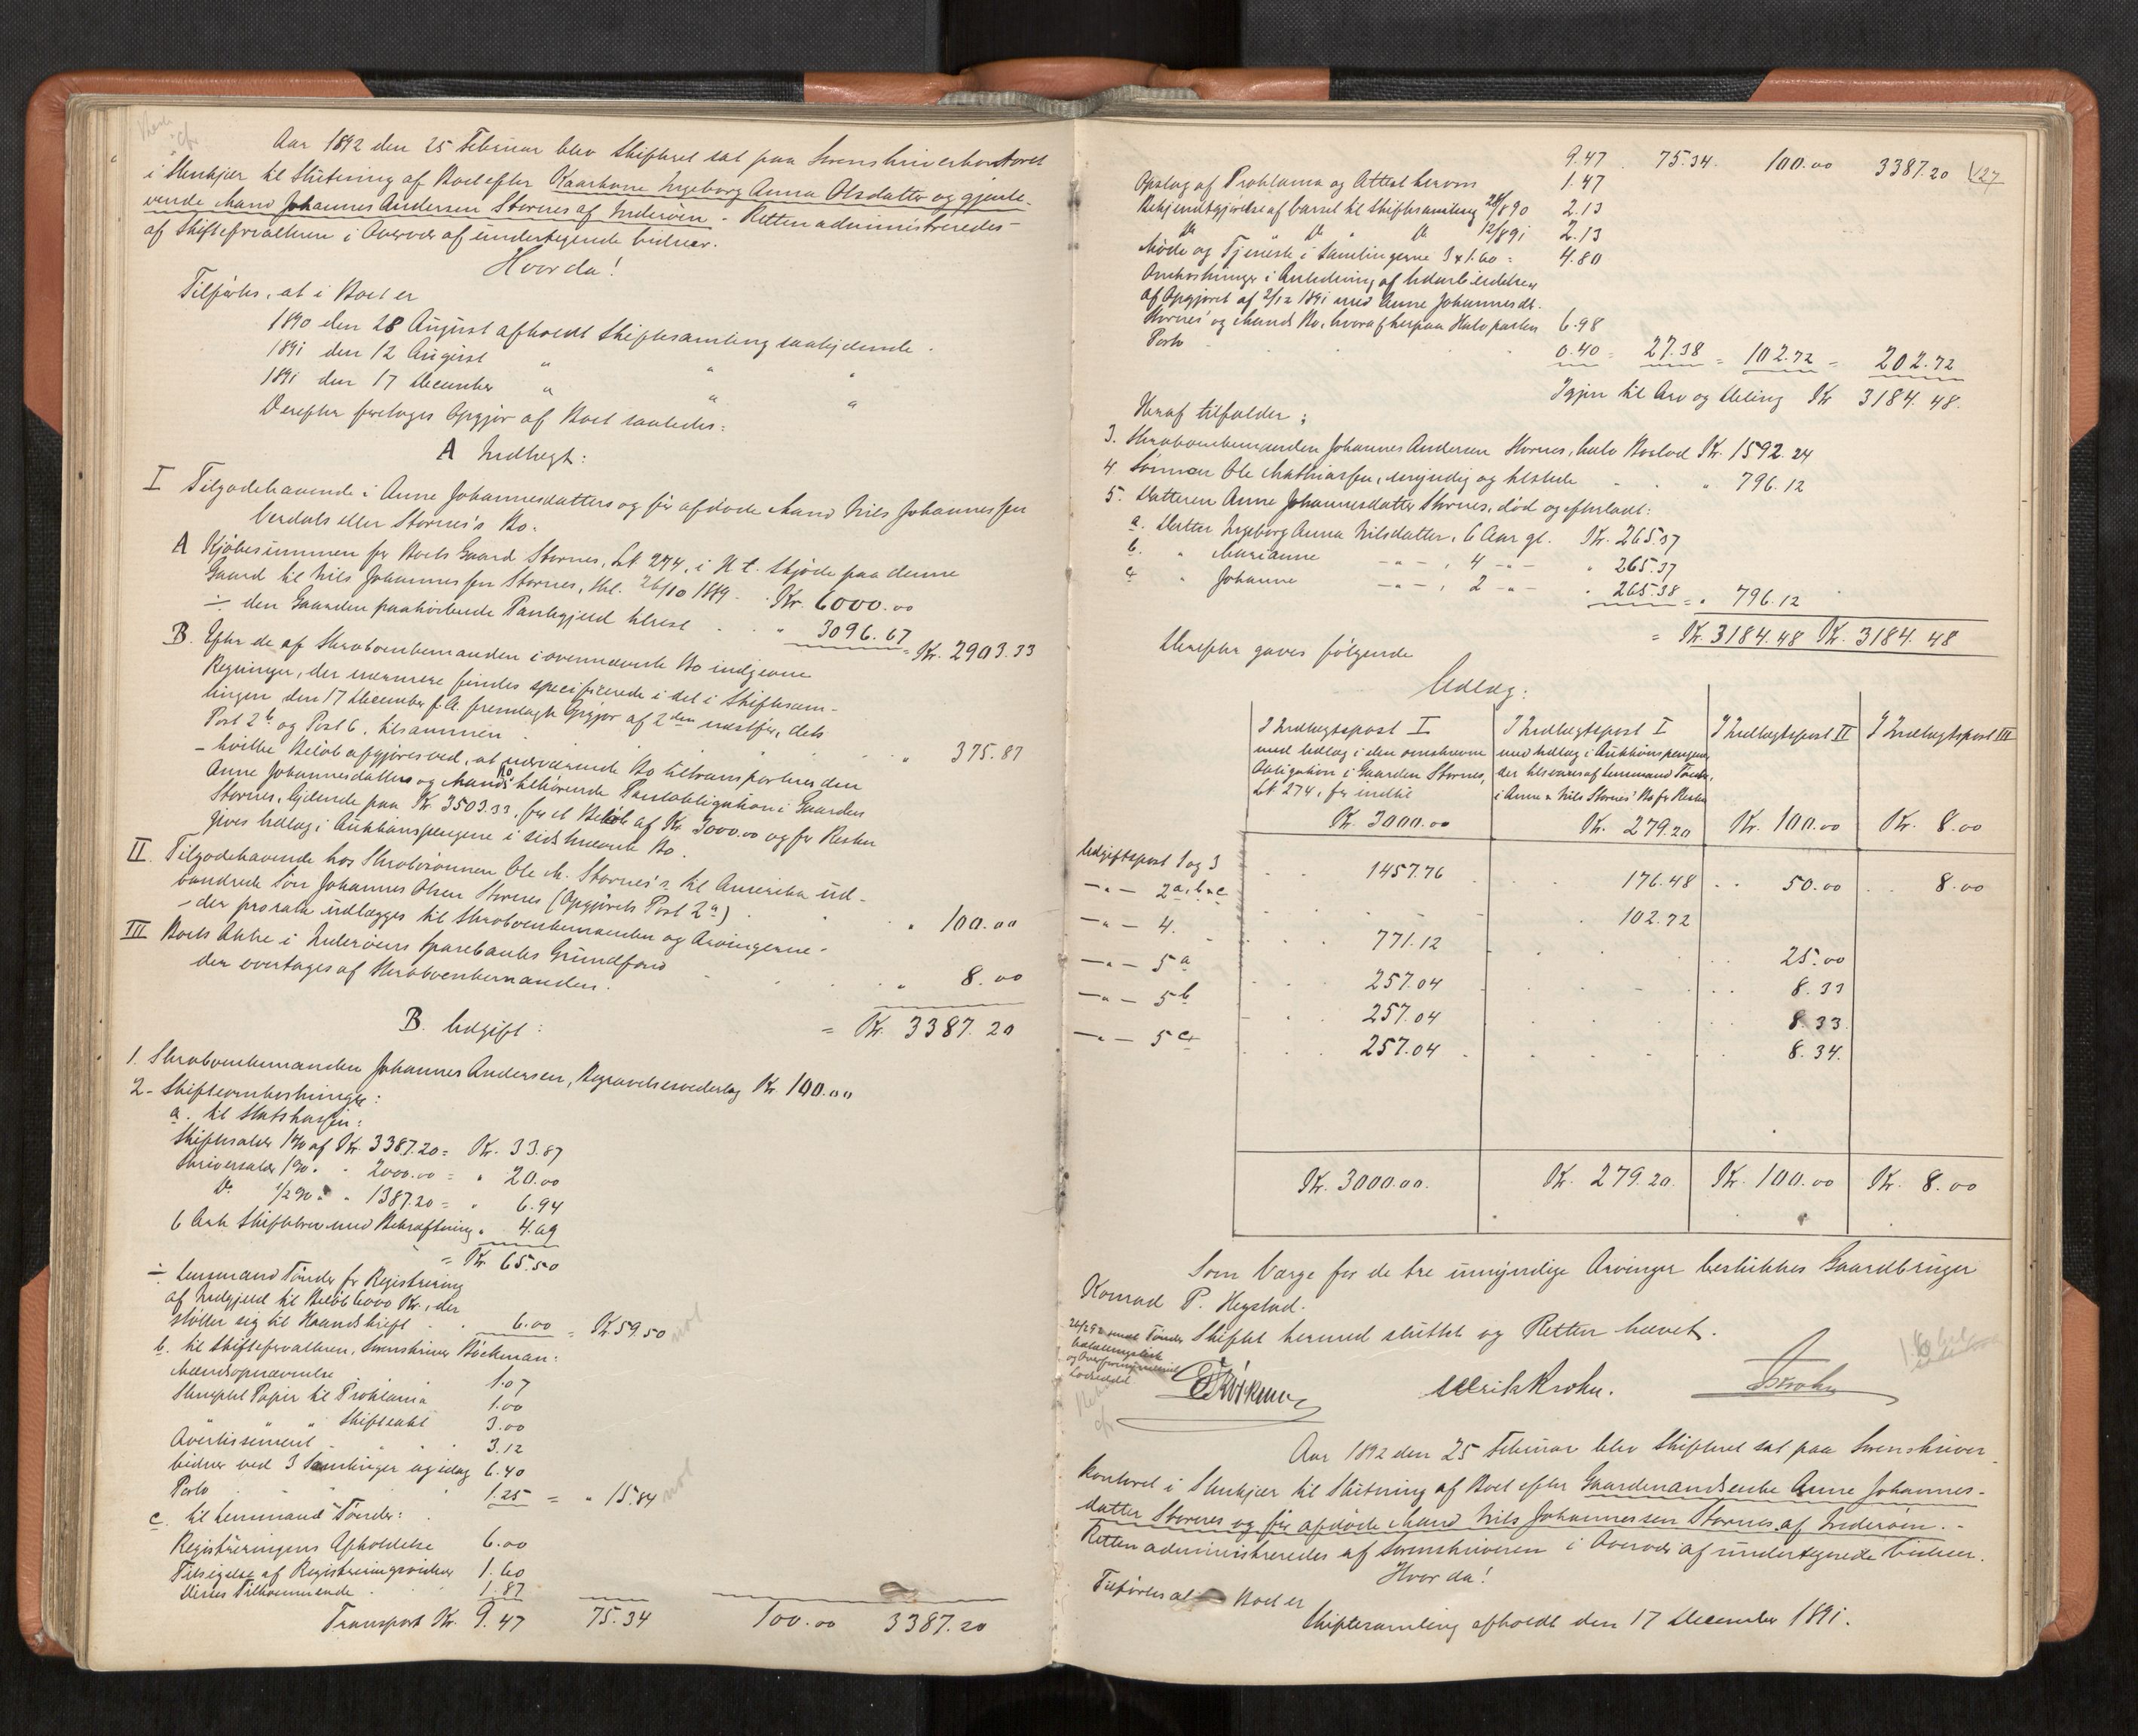 Aar 1892 den 25 Februar blev Skifteret sat paa Sorenskriverkontoret
i Stenkjær til Slutning af Boet efter Kaarkone Ingeborg Anna Olsdatter og gjenle-
vende Mand Johannes Andersen Stornes af Inderøen - Retten administreredes
af Skifteforvalteren i Overvær af undertegnede Vidner.
Hvorda!
Tilførtes, at i Boet er
1890 den 28 August afholdt Skiftesamling saalydende.
1891 den 12 August " " "
1891 den 17 December " " "
Derefter foretoges Opgjør af Boet saaledes:
A Indtægt:
I Tilgodehavende i Anne Johannesdatters og før afdøde Mand Nils Johannessen
Verdals eller Stornes's Bo.
A Kjøbesummen for Boets Gaard Stornes, LN 274, i H. t. Skjøde paa denne
Gaard til Nils Johannessen Stornes, thl. 26/10 1889 - Kr. 6000.00
÷ den Gaarden paahvilende Pantegjeld tilrest . . " 3096.67 = Kr. 2903.33
B. Efter de af Skraboenkemanden i ovennævnte Bo indgivne
Regninger, der nærmere findes specificerede i det i Skiftesam-
lingen den 17 December f. A. fremlagte Opgjør af 2den næstfør, dets
Post 2b og Post 6, tilsammen . . . " 375.87
- hvilke Beløb afgjøres ved, at nærværende Bo tiltransporteres den
Anne Johannesdatters og Mands Bo tilhørende Pantobligation i Gaarden
Stornes, lydende paa Kr. 3503.33, for et Beløb af Kr 3000.00 og for Resten
gives Udlæg i Auktionspengene i sidstnævnte Bo.
II. Tilgodehavende hos Skrabosønnen Ole M. Stornes's til Amerika ud-
vandrede Søn Johannes Olsen Stornes (Opgjørets Post 2a) . . " 100.00
- der prorata udlægges til Skraboenkemanden og Arvingerne -
III Boets Aktie i Inderøens Sparebanks Grundfond . . " 8.00
der overtages af Skraboenkemanden.
= Kr. 3387.20
B. Udgift:
1. Skraboenkemanden Johannes Andersen, Begravelsesvederlag Kr. 100.00
2- Skifteomkostninger:
a. til Statskassen:
Skiftesalær 1% af Kr. 3387.20 = Kr. 33.87
Skriversalær 1% " " 2000.00 = " 20.00
Do 1/2% " " 1387.20 = " 6.94
6 Ark Skiftebrev med Bekræftning " 4.69
= Kr 65.50
÷ Lensmand Tønder for Registrering
af Indgjeld til Beløb 6000 Kr., der
støtter sig til Haandskrift . . 6.00 = Kr 59.50
b. til Skifteforvalteren, Sorenskriver Bøckman:
Mændsopnævnelse 1.07
Stemplet Papir til Proklama 1.00
" " " Skifteakt 3.00
Avertissement . . . 3.12
Vidner ved 3 Samlinger og idag 6.40
Porto . . 1.25 = " 15.84
c. til Lensmand Tønder:
Registreringens Afholdelse 6.00
Tilsigelse af Registreringsvidner 1.60
Disses Tilkommende . 1.87
Transport Kr. 9.47 75.34 100.00 3387.20
9.47 . 75.34. 100.00 3387.20 127
Opslag af Proklama og Attest herom 1.47
Bekjendtgjørelse af Varsel til Skiftesamling 28/8 90 2.13
Do " Do " Do 12/8 91 2.13
Møde og Tjeneste i Samlingerne 3 x 1.60 = 4.80
Omkostninger i Anledning af Udarbeidelsen
af Opgjøret af 2/12 1891 med Anne Johannesdr.
Stornes' og Mands Bo, hvoraf herpaa Halvparten 6.98
Porto . . . 0.40 = 27.38 = 102.72 = 202.72
Igjen til Arv og Deling Kr 3184.48.
Heraf tilfalder:
3. Skraboenkemanden Johannes Andersen Stornes, halv Boslod Kr. 1592.24
4. Sønnen Ole Mathiassen, myndig og tilstede . . . " 796.12
5. Datteren Anne Johannesdatter Stornes, død og efterladt:
a. Datter Ingeborg Anna Nilsdatter, 6 Aar gl. Kr. 265.37
b. " Marianne -"- , 4 -"- " 265.37
c " Johanne -"- , 2 -"- " 265.38 = " 796.12
= Kr. 3184.48 Kr. 3184.48
Derefter gaves følgende
Udlæg:
I Indtægtspost I I Indtægtspost I I Indtægtspost II I Indtægtspost III
med Udlæg i den omskrevne med Udlæg i Auktionspengene,
Obligation i Gaarden Stornes, der tilsvares af Lensmand Tønder,
LN 274, for indtil i Anne & Nils Stornes' Bo for Resten
Kr. 3000.00 Kr. 279.20 Kr. 100.00 Kr. 8.00
Udgiftspost 1 og 3 . . 1457.76 . . 176.48 . . 50.00 . . 8.00
-"- 2a, b & c . . . . 102.72
-"- 4. . . . 771.12 . . . 25.00
-"- 5a . . . 257.04 . . . 8.33
-"- 5b . . 257.04 . . . 8.33.
-"- 5c . . . 257.04 . . . 8.34.
Kr. 3000.00. Kr. 279.20. Kr. 100.00 Kr. 8.00
Som Værge for de tre umyndige Arvinger beskikkes Gaardbruger
Konrad P. Hegstad.
Skiftet hermed sluttet og Retten hævet.
Ulrik Krohn.
Aar 1892 den 25 Februar blev Skifteret sat paa Sorenskriver-
kontoret i Stenkjær til Slutning af Boet efter Gaardmandsenke Anne Johannes-
datter Stornes og før afdøde Mand Nils Johannessen Stornes af Inderøen. -
Retten administreredes af Sorenskriveren i Overvær af undertegnede Vidner.
Hvor da!
Tilførtes at Boet er
Skiftesamling afholdt den 17 December 1891.